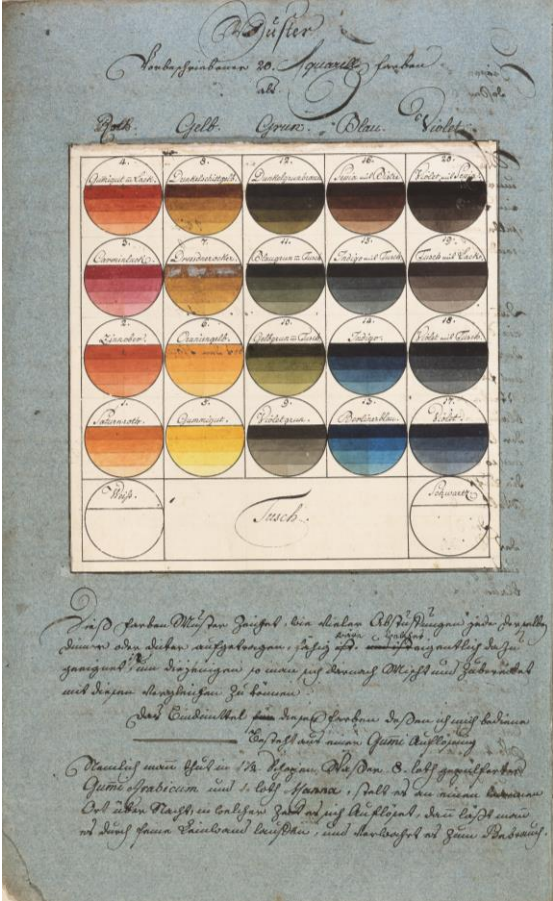 Muster
Vorbeschriebener 20. Aquarell Farben
als
Roth. Gelb. Grun. Blau. Violet.
4. 8. 12. 16. 20.
Guttigut u Lack. Dunkelschüttgelb. Dunkelgrunbraun Sepia mit Bister Violet mit Sepia
3. 7. 11. 15. 19.
Carminlack. Blaugrun u Tusch Indigo mit Tusch Tusch mit Lack
2. 6. 10. 14. 18.
Zinnober. Gelbgrun u Tusch Indigo. Violet mit Tusch
1. 5. 9. 13. 17.
Saturnroth. Gummigut. Violetgrun. Berlinerblau. Violet.
Weiß. Tusch. Schwartz
Dieß Farben Muster Zeichet, wie vieler Abstuffungen jede derselben
dünner oder dicker aufgetragen, fähig eigentlich dazu
geeignet, um diejenigen so man sich darnach Mischt und Zubereitet
mit diesen Vergleichen Zu können.
Das Bindmittel dieser Farben deßen ich mich bediene
Besteht aus einer Gumi Auflösung
Nemlich mann thut in Schopen Waßer 8. loth gepulferten
Gumi Arabicum und 1. loth Manna, stelt es an einen warmen
Ort über Nacht, in welcher Zeit es sich Auflöset, dan läßt man
es durch feine Leinwand lauffen, und Verwahrt es Zum Gebrauch.